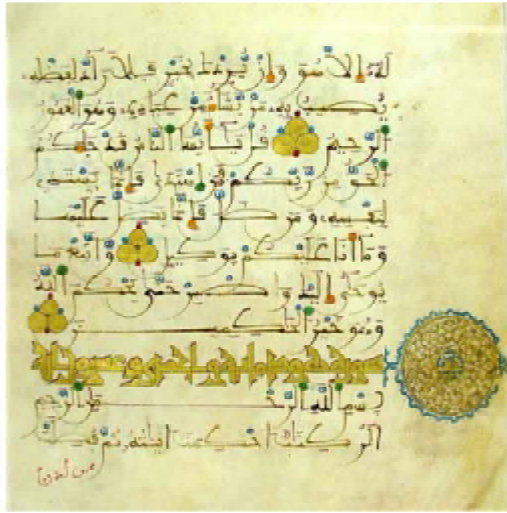 له إلا هو وإن يردك بخير فلا راد لفضله
يصيب به من يشاء من عباده وهو الغفور
الرحيم قل يأيها الناس قد جاءكم
الحق من ربكم فمن اهتدى فإنما يهتدي
لنفسه ومن ضل فإنما يضل عليها
وما أنا عليكم بوكيل واتبع ما
يوحى إليك واصبر حتى يحكم الله
وهو خير الحكمين
سورة هود مائة وإحدى وعشرون آية
بسم الله الرحمن الرحيم
الر كتاب أحكمت آياته ثم فصلت
من لدن